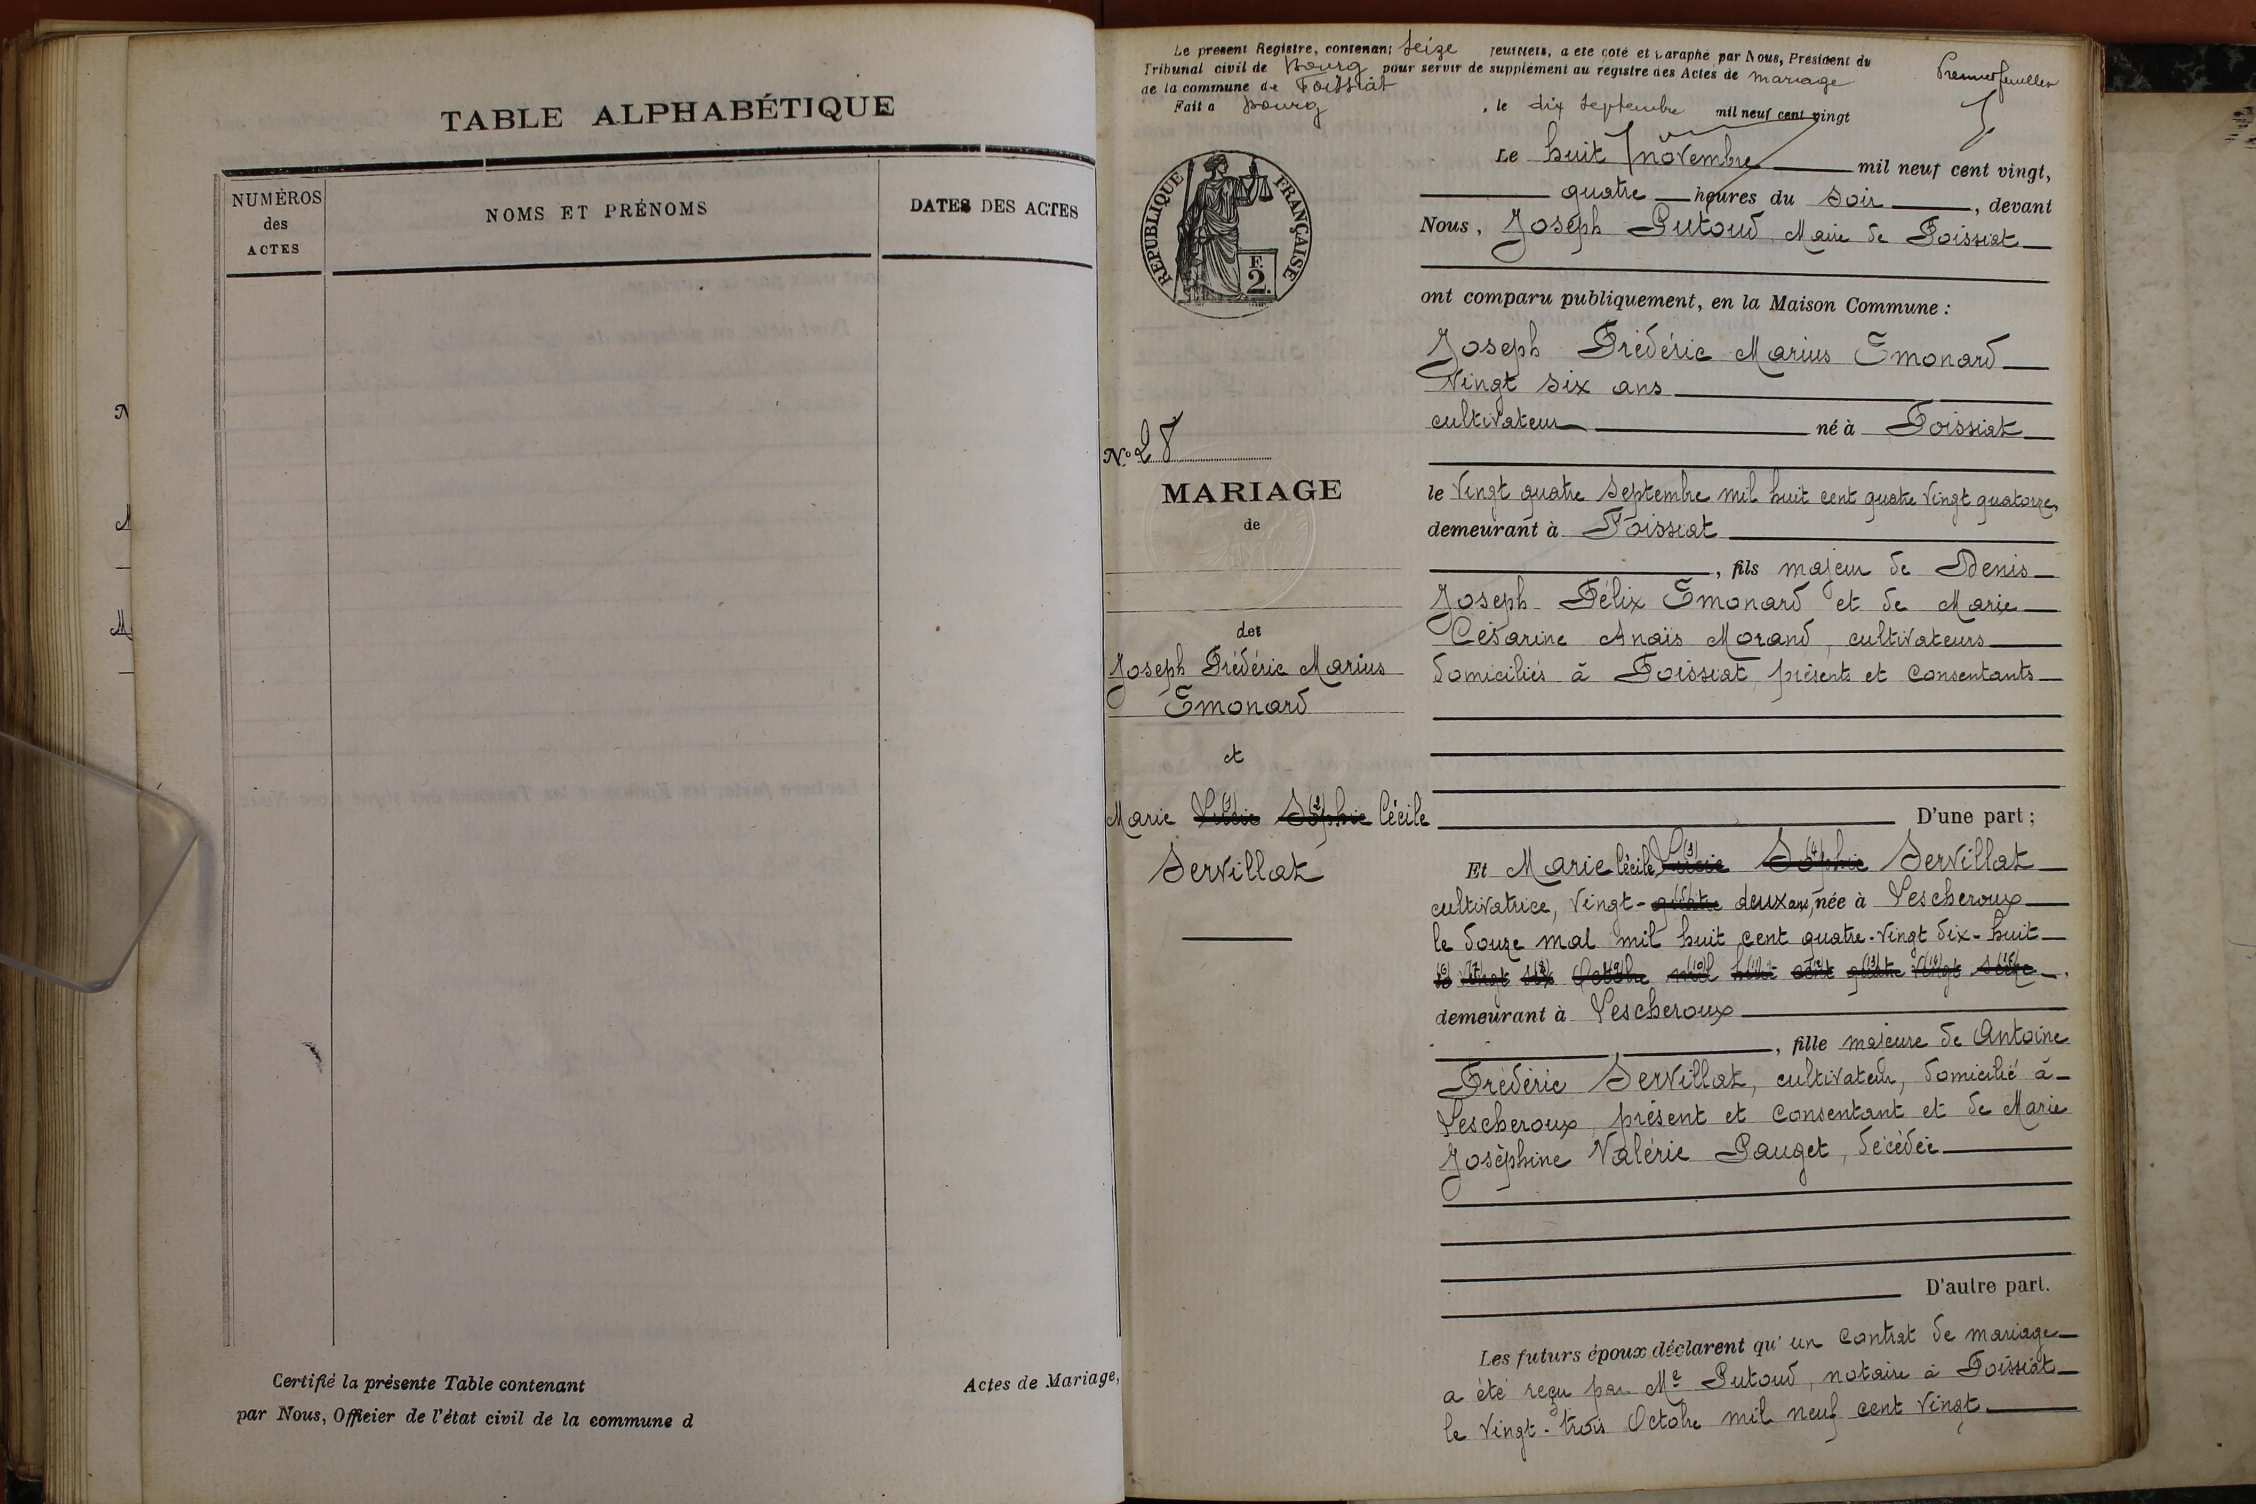 TABLE ALPHABÉTIQUE
NUMÉROS
des
ACTES
NOMS ET PRÉNOMS
DATES DES ACTES
Certifié la présente Table contenant
Actes de Mariage,
par Nous, Officier de l'état civil de la commune d
Le présent Registre, contenant seize feuillets, a été coté et paraphé par Nous, Président du
Tribunal civil de Bourg pour servir de supplément au registre des Actes de mariage
de la commune de Foissiat
Fait à Bourg, le dix septembre mil neuf cent vingt
Premier feuillet
RÉPUBLIQUE FRANÇAISE
F.
2.
N° 28
MARIAGE
de
de
Joseph Frédéric Marius
Emonard
et
Marie Lucie (1) Sophie (2) Cécile
Servillat
Le huit novembre mil neuf cent vingt,
quatre heures du soir, devant
Nous, Joseph Putoud, Maire de Foissiat
ont comparu publiquement, en la Maison Commune :
Joseph Frédéric Marius Emonard
Vingt six ans
cultivateur né à Foissiat
le Vingt quatre Septembre mil huit cent quatre vingt quatorze,
demeurant à Foissiat
, fils majeur de Denis
Joseph Félix Emonard et de Marie
Césarine Anaïs Morand, cultivateurs
domiciliés à Foissiat, présents et consentants
D'une part ;
Et Marie Cécile Lucie (3) Sophie (4) Servillat
cultivatrice, vingt-quatre (5) deux ans, née à Lescheroux
le douze mai mil huit cent quatre-vingt dix-huit
le (6) vingt (7) six (8) Octobre (9) mil (10) huit (11) cent (12) quatre (13) vingt (14) seize (15),
demeurant à Lescheroux
, fille majeure de Antoine
Frédéric Servillat, cultivateur, domicilié à
Lescheroux, présent et consentant et de Marie
Joséphine Valérie Pauget, décédée
D'autre part.
Les futurs époux déclarent qu'un contrat de mariage
a été reçu par Me Putoud, notaire à Foissiat
le vingt-trois Octobre mil neuf cent vingt